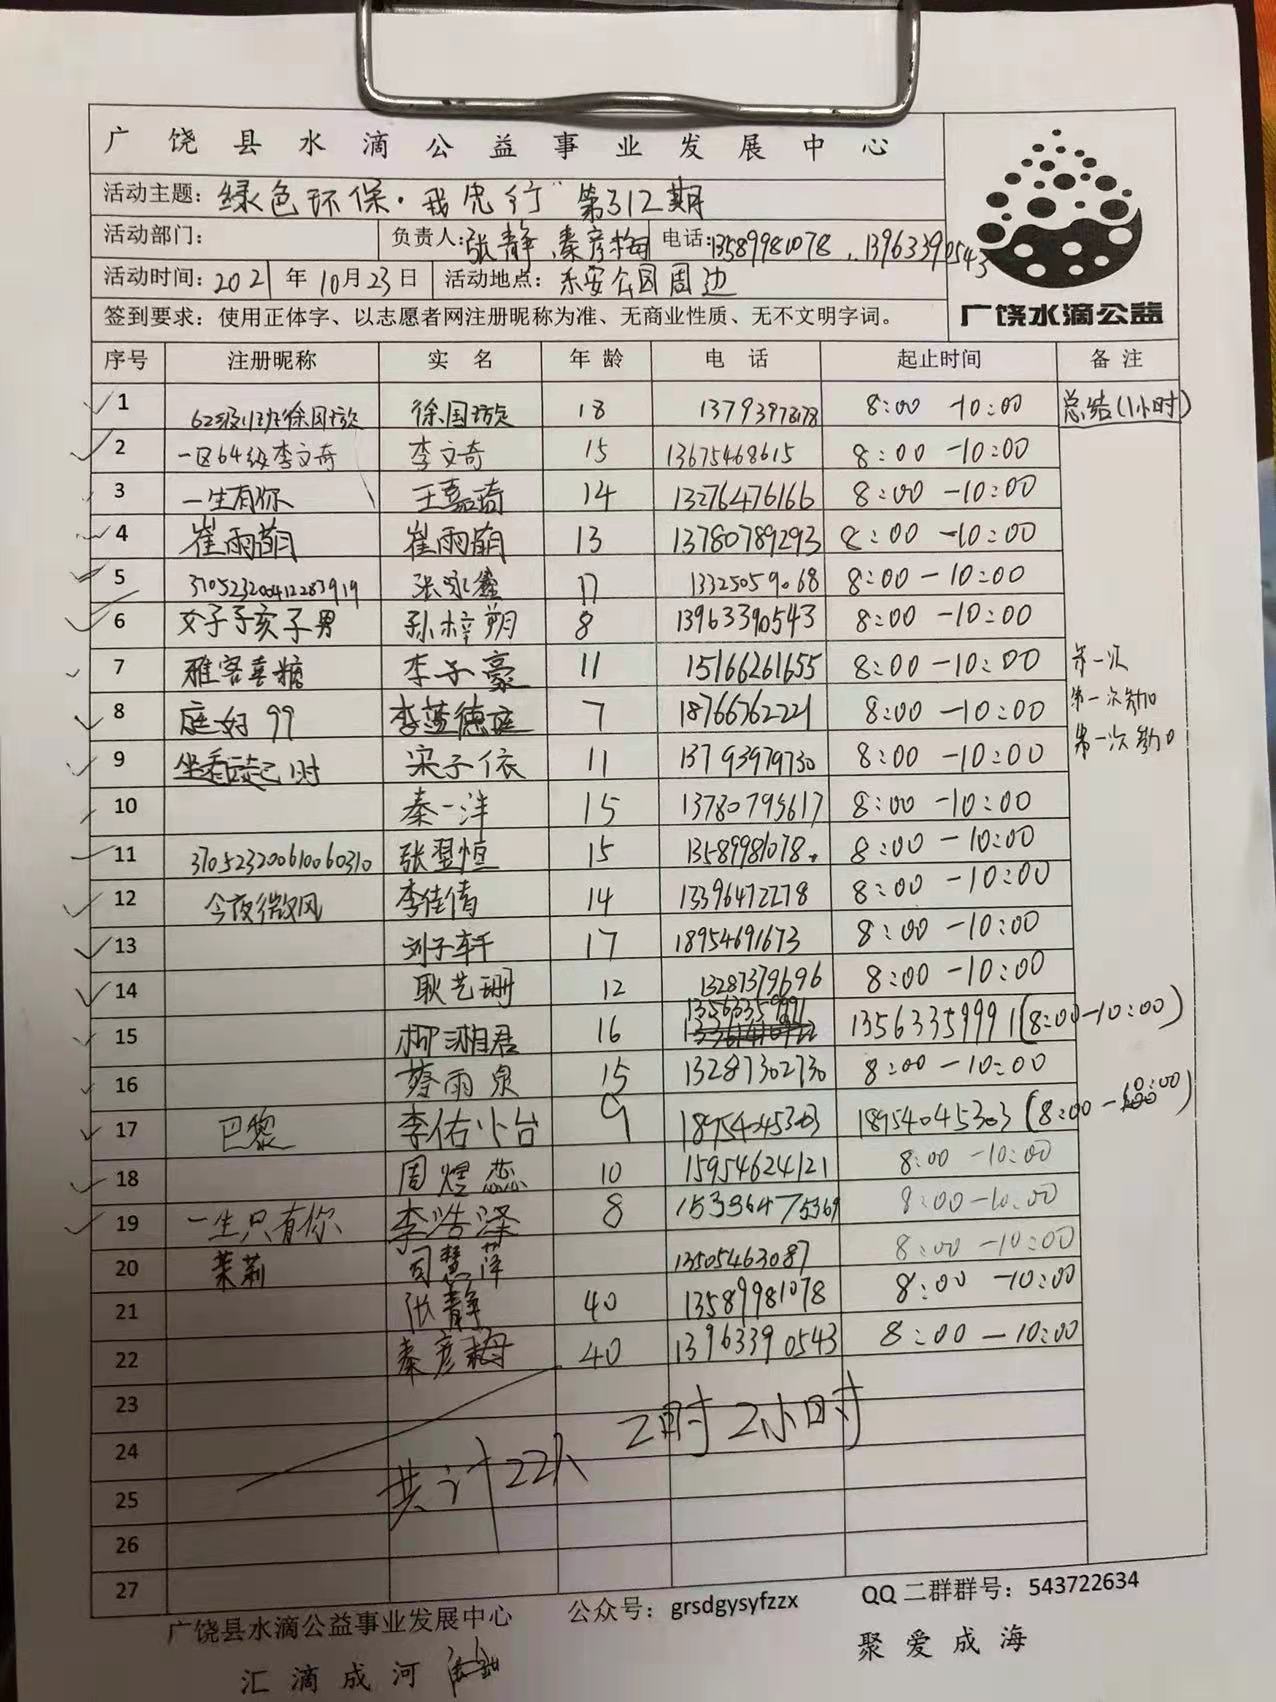 广饶县水滴公益事业发展中心
活动主题：绿色环保·我先行"第312期
活动部门： 负责人：张静、秦彦梅 电话：13589981078、13963390543
活动时间：2021年10月23日 活动地点：乐安公园周边
签到要求：使用正体字、以志愿者网注册昵称为准、无商业性质、无不文明字词。
广饶水滴公益
序号 注册昵称 实名 年龄 电话 起止时间 备注
1 徐国璇 18 8:00 -10:00 总结(1小时)
2 一区64级李文奇 李文奇 15 13675468615 8:00 -10:00
3 一生有你 王嘉琦 14 13276476166 8:00 -10:00
4 崔雨萌 崔雨萌 13 13780789293 8:00 -10:00
5 370523200412283919 张咏鑫 17 13325059068 8:00 -10:00
6 女子子亥子男 孙梓朔 8 13963390543 8:00 -10:00
7 雅客喜糖 李子豪 11 15166261655 8:00 -10:00 第一次
8 庭好99 李蓝德庭 7 18766762221 8:00 -10:00 第一次参加
9 坐看云起时 宋子依 11 13793979730 8:00 -10:00 第一次参加
10 秦一洋 15 13780795617 8:00 -10:00
11 370523200610060310 张翌恒 15 13589981078. 8:00 -10:00
12 今夜微风 李佳倩 14 13396472278 8:00 -10:00
13 刘子轩 17 18954691673 8:00 -10:00
14 耿艺珊 12 13287379696 8:00 -10:00
15 柳湘君 16 13563359991 13563359991(8:00-10:00)
16 蔡雨泉 15 13287302730 8:00 -10:00
17 巴黎 李佑小台 9 18954045303 18954045303(8:00-10:00)
18 周煜蕊 10 15954624121 8:00 -10:00
19 一生只有你 李浩泽 8 15336475369 8:00-10:00
20 茉莉 司慧萍 13505463087 8:00 -10:00
21 张静 40 13589981078 8:00 -10:00
22 秦彦梅 40 13963390543 8:00 -10:00
23
24
25
26
27
共计22人 2时 2小时
广饶县水滴公益事业发展中心 公众号：grsdgysyfzzx QQ二群群号：543722634
汇滴成河 聚爱成海